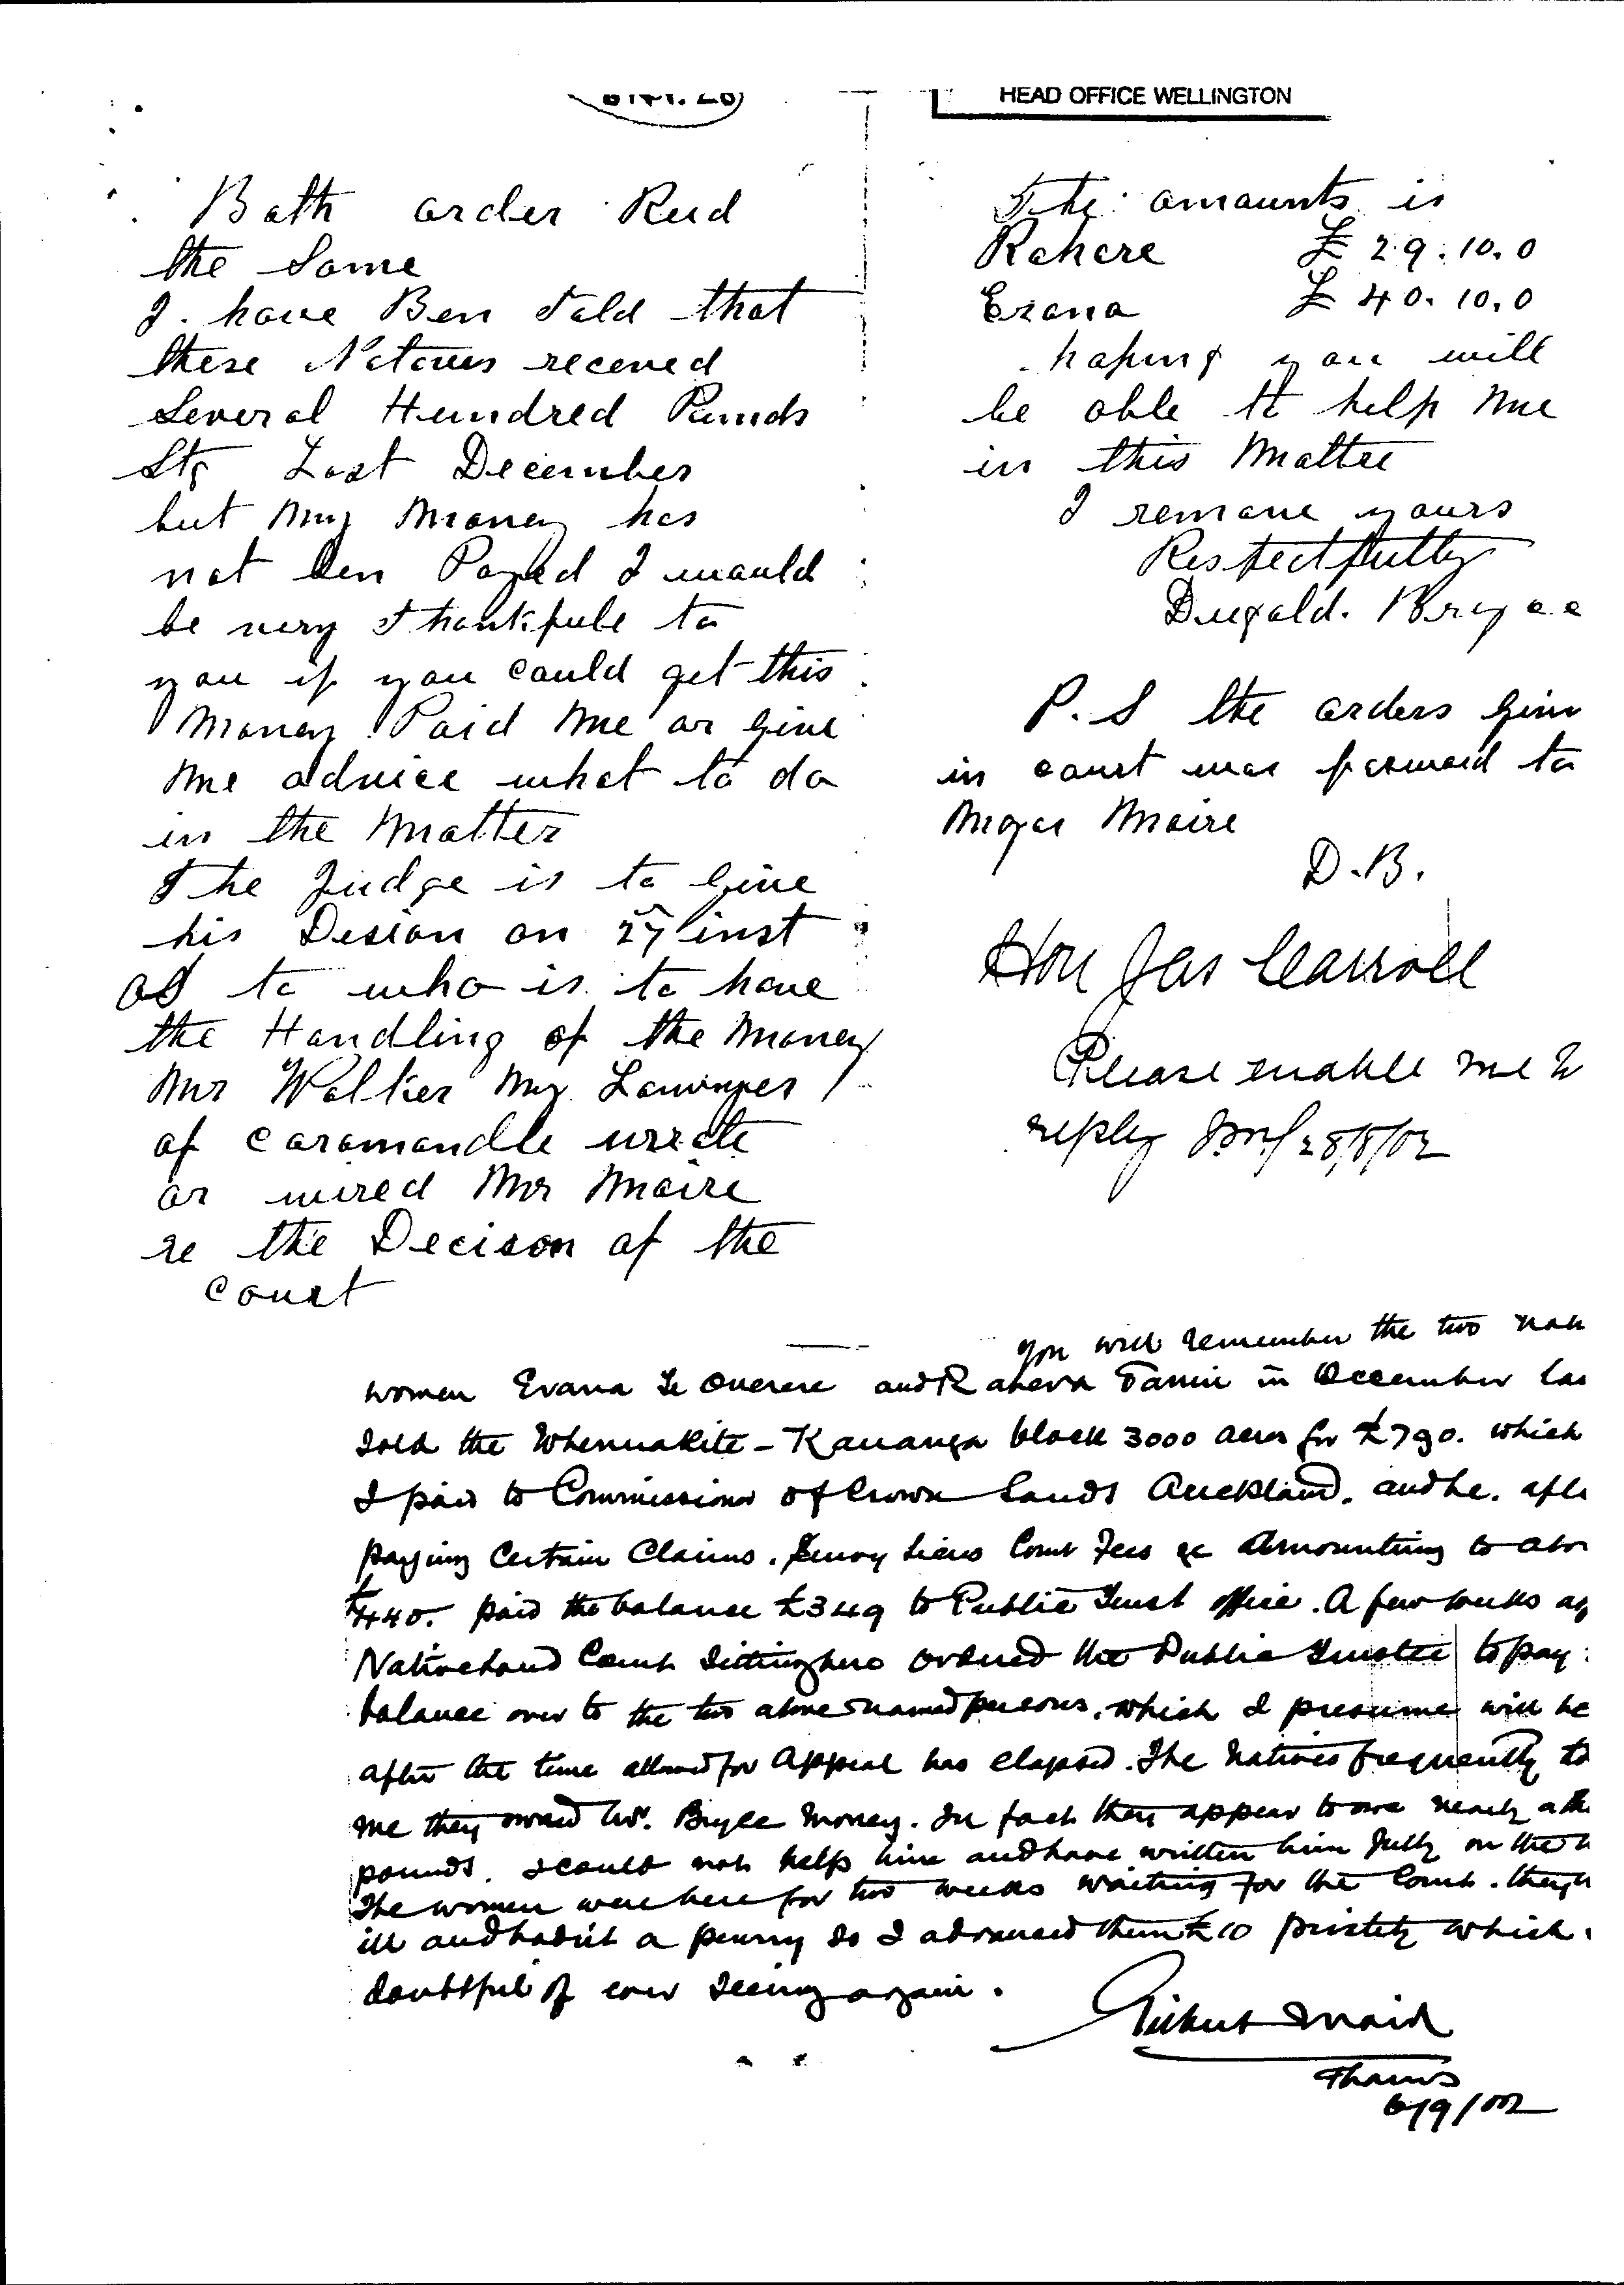 HEAD OFFICE WELLINGTON
Both order Reed
the Same
I. have Ben Told that
these Natives receved
Several Hundred Pounds
Stg Last December
but my money has
not ben Payed I would
be very thankfule to
you if you could get this
money Paid me or give
me advice what to do
in the matter
The Judge is to give
his Desion on 27 inst
as to who is to have
the Handling of the money
Mr Walker my Lawyer
of Caromandle wrote
or wired Mr Maire
re the Decison of the
Court
The amounts is
Rahere £ 29.10.0
Erana £ 40.10.0
hoping you will
be able to help me
in this Matter
I remane yours
Respectfully
Dugald. Bryce
P.S the orders give
in court was forward to
Mager Maire
D.B.
Hon Jas Carroll
Please enable me to
reply 28/8/02
you will remember the two
women Erana Te and Rahera in December
sold the Whenuakite - Kauanga block 3000 acres for £790. which
I paid to Commissioner of Crown Lands Auckland. and he. after
paying Certain Claims. Survey Liens Court Fees &c amounting to
£440. paid the balance £349 to Public Trust office. A few weeks
Native Land Court sitting here ordered the Public Trustee to pay
balance over to the two above named persons. which I presume will be
after the time allowed for Appeal has elapsed. The Natives frequently
me they owed Mr. Bryce money. In fact they appear to owe nearly
pounds. I could not help him and have written him fully on the
The women were here for two weeks waiting for the Court. they
ill and hadn't a penny so I advanced them £10 privately which
doubtful of ever seeing again.
Gilbert Mair
Thames
6/9/02